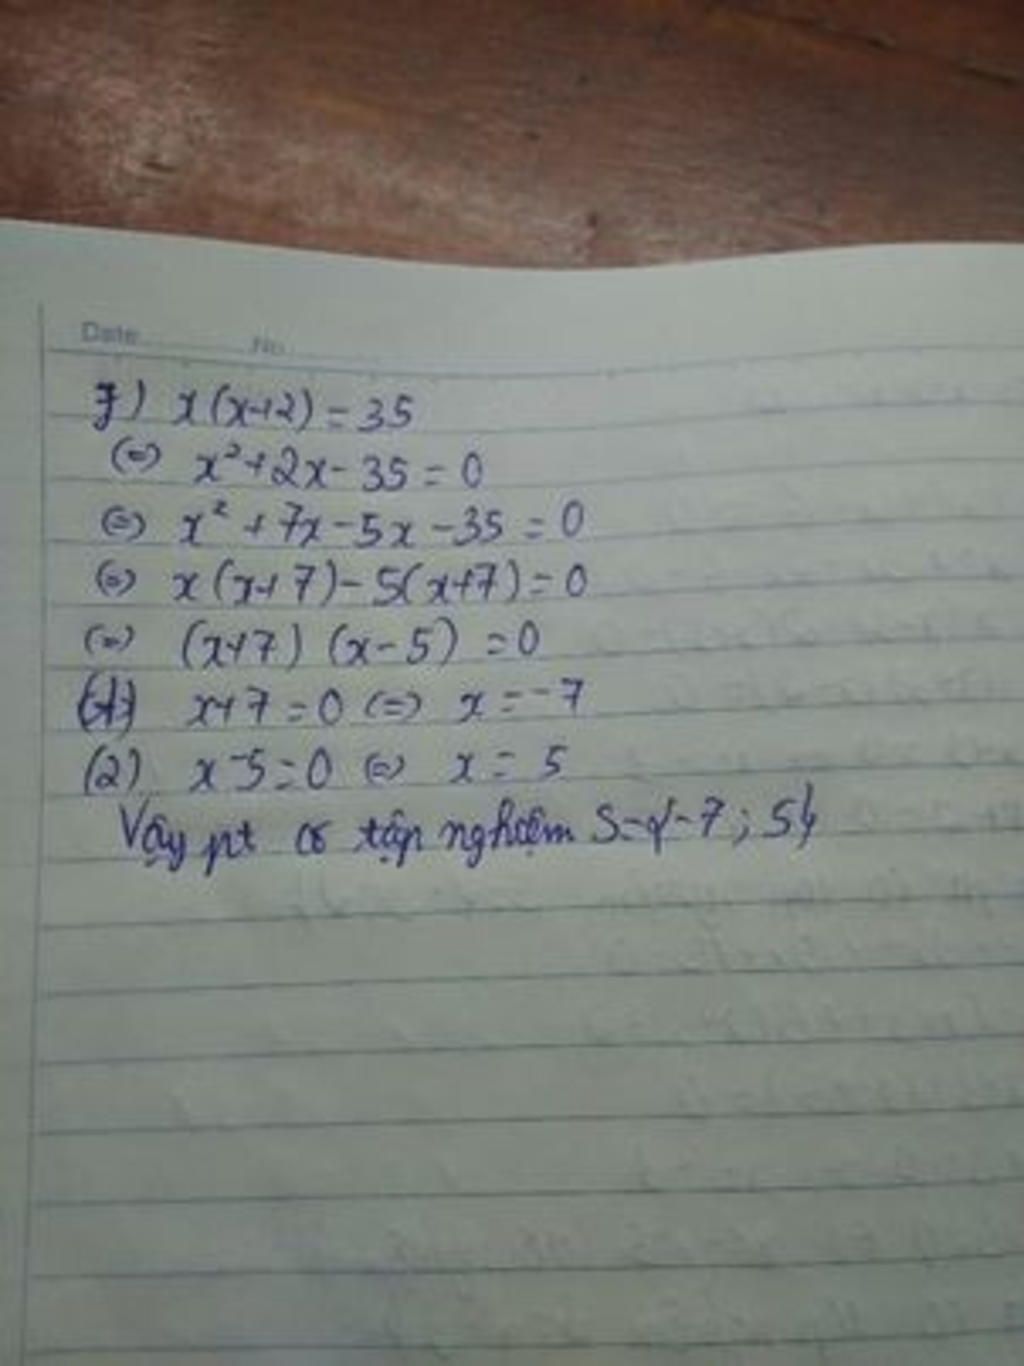 Date No
7) x(x+2) = 35
(=) x² + 2x - 35 = 0
(=) x² + 7x - 5x - 35 = 0
(=) x(x+7) - 5(x+7) = 0
(=) (x+7) (x-5) = 0
(1) x+7 = 0 (=) x = -7
(2) x-5 = 0 (=) x = 5
Vậy pt có tập nghiệm S = {-7 ; 5}